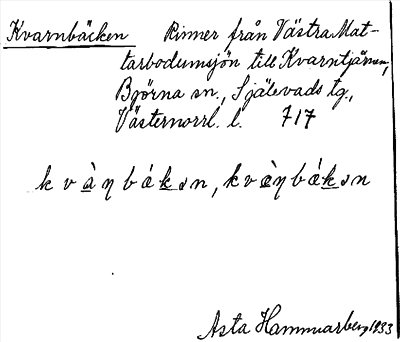 Kvarnbäcken Rinner från Västra Mat-
tarbodumsjön till Kvarntjärnen,
Björna sn., Själevads tg.,
Västernorrl. l. 717
k v à η b á k ə n, k v æ̀ η b ǽ k ə n
Asta Hammarberg 1933